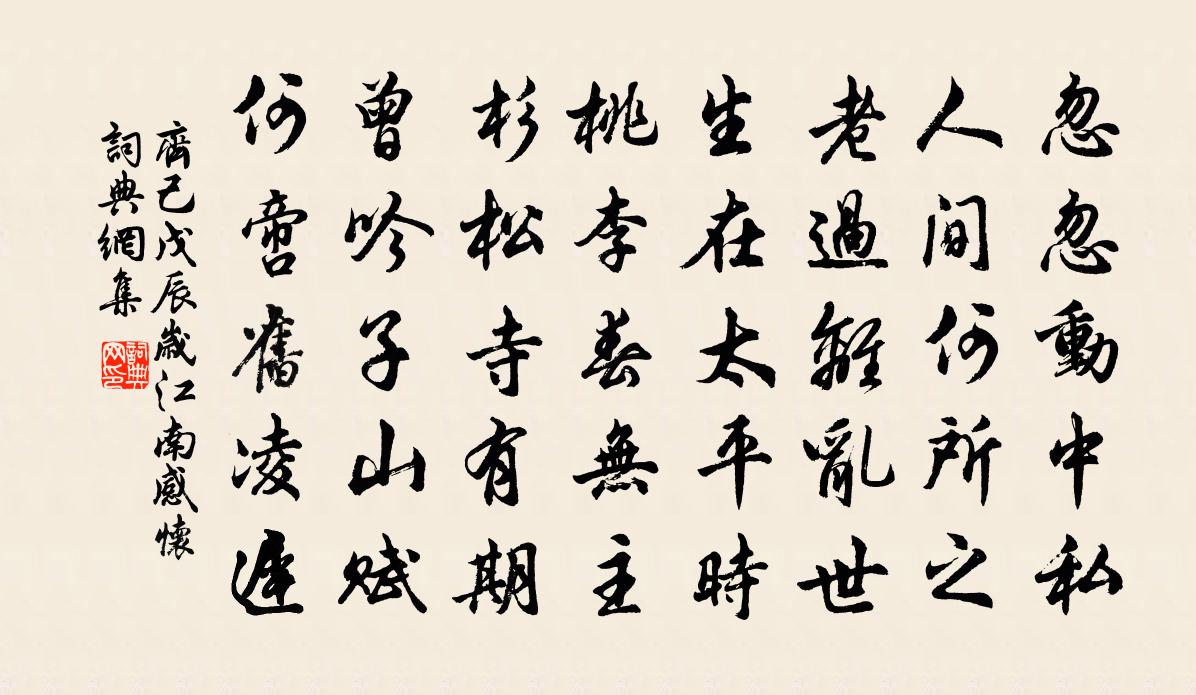 忽忽動中私
人間何所之
老過離亂世
生在太平時
桃李春無主
杉松寺有期
曾吟子山賦
何啻舊凌遲
齊己戊辰歲江南感懷
詞典網集
詞典网印